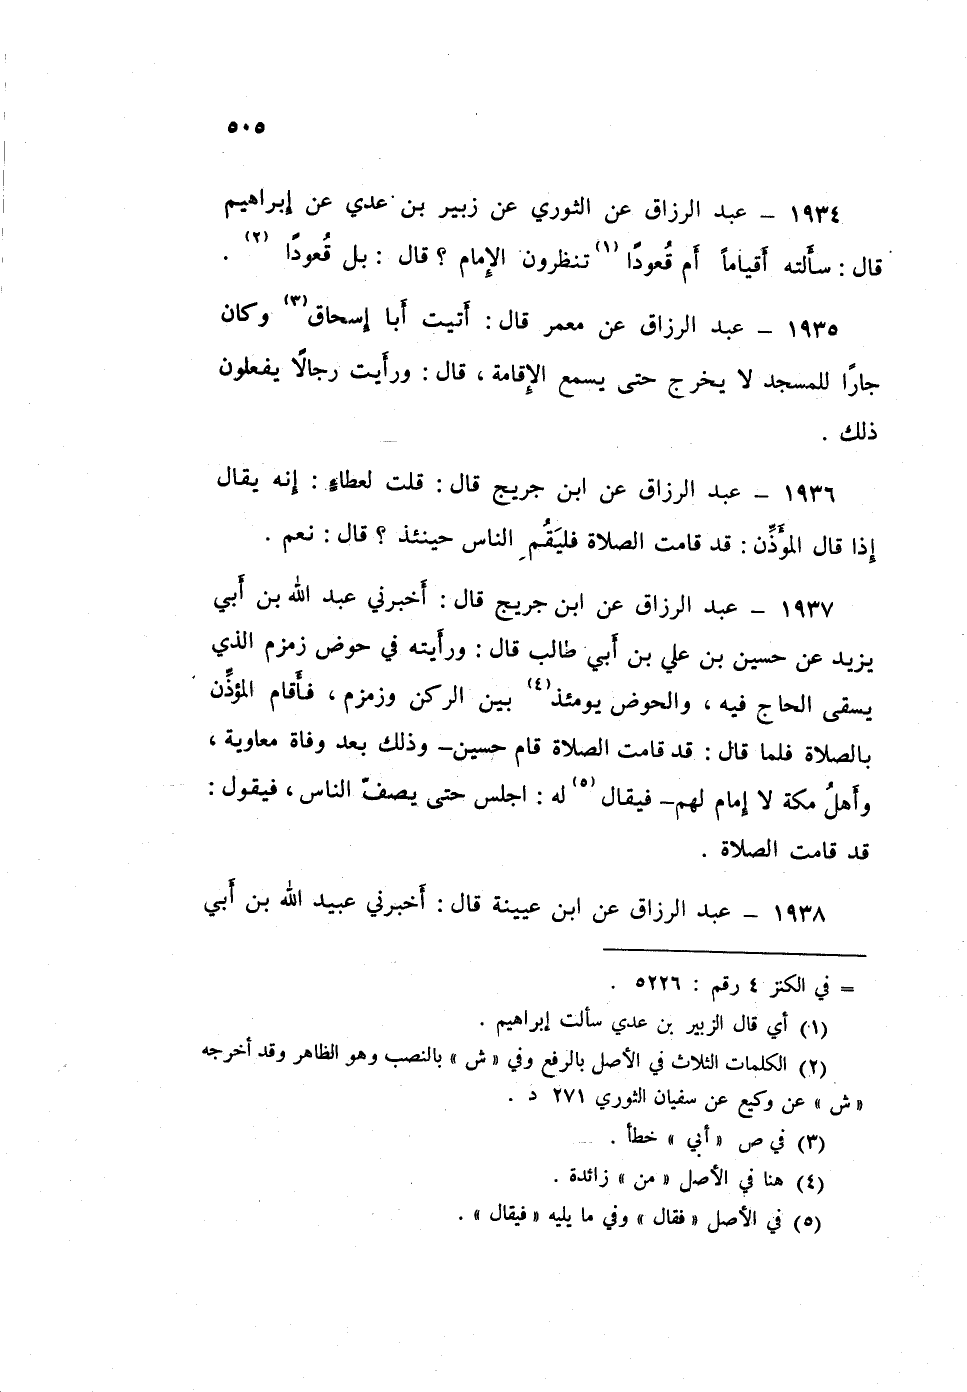 ٥٠٥
١٩٣٤ – عبد الرزاق عن الثوري عن زبير بن عدي عن إبراهيم
قال : سأَلته أَقياماً أَم قُعودًا (١) تنظرون الإِمام ؟ قال : بل قُعودًا (٢) .
١٩٣٥ – عبد الرزاق عن معمر قال : أَتيت أَبا إسحاق (٣) وكان
جارًا للمسجد لا يخرج حتى يسمع الإِقامة ، قال : ورأَيت رجالًا يفعلون
ذلك .
١٩٣٦ – عبد الرزاق عن ابن جريج قال : قلت لعطاءٍ : إِنه يقال
إِذا قال المؤَذِّن : قد قامت الصلاة فليَقُمِ الناس حينئذ ؟ قال : نعم .
١٩٣٧ – عبد الرزاق عن ابن جريج قال : أَخبرني عبد الله بن أَبي
يزيد عن حسين بن علي بن أَبي طالب قال : ورأَيته في حوض زمزم الذي
يسقى الحاج فيه ، والحوض يومئذ (٤) بين الركن وزمزم ، فأَقام المؤذِّن
بالصلاة فلما قال : قد قامت الصلاة قام حسين – وذلك بعد وفاة معاوية ،
وأَهلُ مكة لا إِمام لهم – فيقال (٥) له : اجلس حتى يصفّ الناس ، فيقول :
قد قامت الصلاة .
١٩٣٨ – عبد الرزاق عن ابن عيينة قال : أَخبرني عبيد الله بن أَبي
= في الكنز ٤ رقم : ٥٢٢٦ .
(١) أي قال الزبير بن عدي سألت إبراهيم .
(٢) الكلمات الثلاث في الأصل بالرفع وفي « ش » بالنصب وهو الظاهر وقد أخرجه
« ش » عن وكيع عن سفيان الثوري ٢٧١ د .
(٣) في ص « أبي » خطأ .
(٤) هنا في الأصل « من » زائدة .
(٥) في الأصل « فقال » وفي ما يليه « فيقال » .